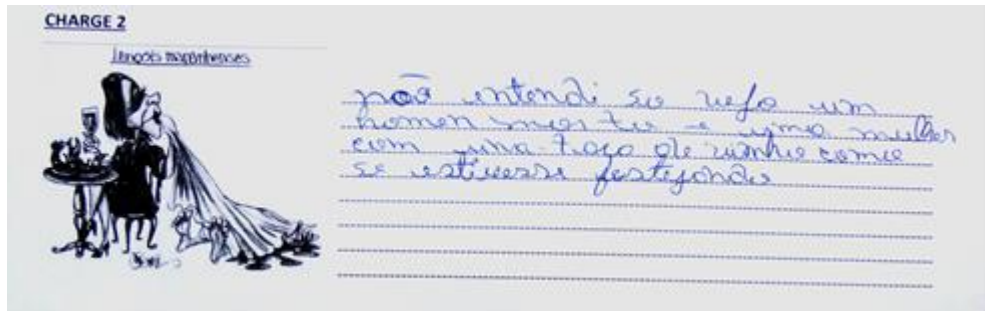 CHARGE 2
Lençóis maranhenses
não entendi so vejo um
homen morto e uma mulher
com una taça de vinho como
se estivesse festejando